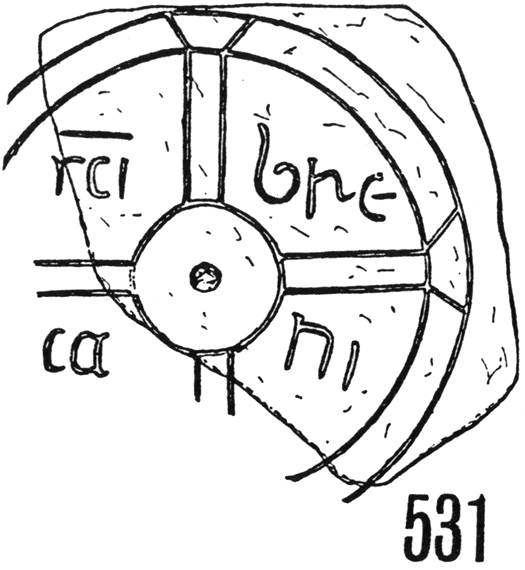 s̅c̅i̅ bre
ca ni
531